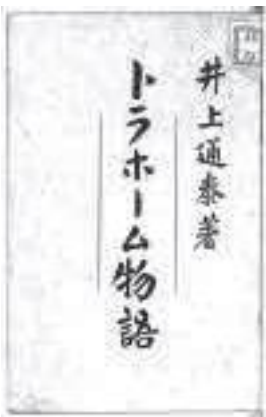 井上通泰著
トラホーム物語